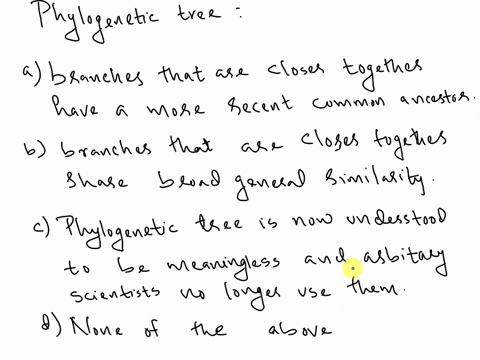 Phylogenetic tree :
a) branches that are closes together
have a more recent common ancestor.
b) branches that are closes together
share broad general similarity.
c) Phylogenetic tree is now understood
to be meaningless and asbitary
scientists no longer use them.
d) None of the above